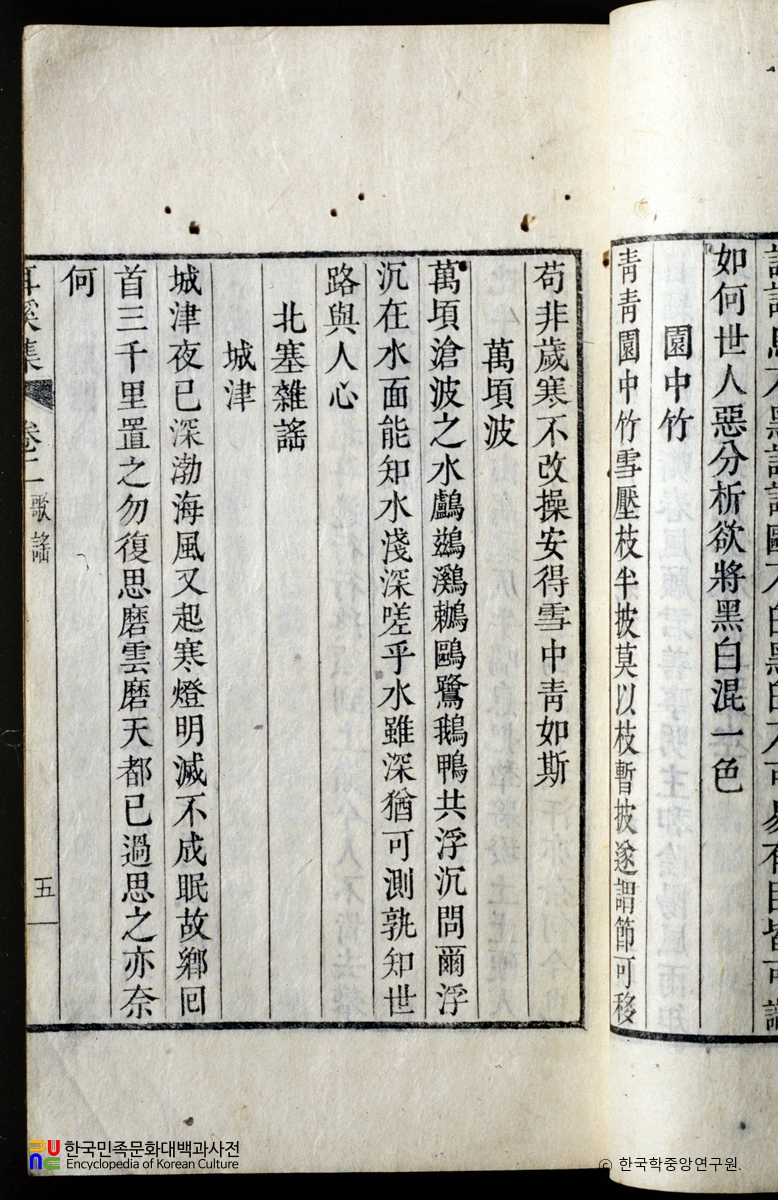 如何世人惡分析欲將黑白混一色
園中竹
靑靑園中竹雪壓枝半披莫以枝暫披遂謂節可移
苟非歲寒不改操安得雪中靑如斯
萬頃波
萬頃滄波之水鸕鷀鸂鶒鷗鷺鵝鴨共浮沉問爾浮
沉在水面能知水淺深嗟乎水雖深猶可測孰知世
路與人心
北塞雜謠
城津
城津夜已深渤海風又起寒燈明滅不成眠故鄉囘
首三千里置之勿復思磨雲磨天都已過思之亦奈
何
耳溪集 卷二 歌謠 五
한국민족문화대백과사전
Encyclopedia of Korean Culture
ⓒ 한국학중앙연구원.